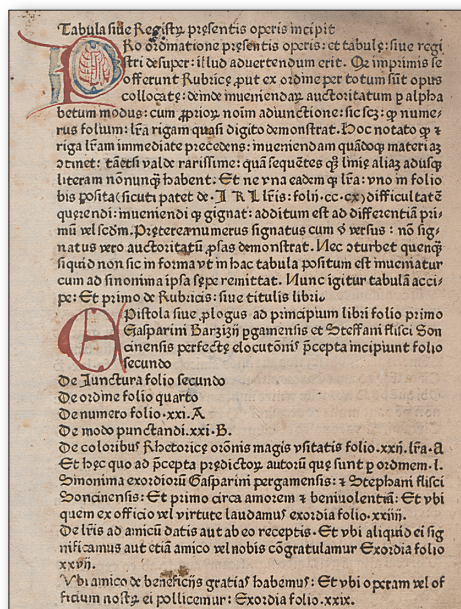 Tabula siue Registꝝ presentis operis incipit
PRo ordinatione pręsentis operis: et tabulę: siue regi
stri desuper: illud aduertendum erit. Qꝫ imprimis se
offerunt Rubricę ꝓut ex ordine per totum sūt opus
collocatę: deinde inueniendaꝝ auctoritatum ꝑ alpha
betum modus: cum ꝓprioꝝ noīm adiunctione: sic scꝫ: ꝙ nume-
rus folium: lr̄a rigam quasi digito demonstrat. Hoc notato ꝙ ⁊
riga lr̄am immediate precedens: inueniendam quādoqꝫ materiaꝫ
ↄtinet: tāetsi valde rarissime: quā sequētes qꝫ linię aliaꝫ adusqꝫ
literam nōnunqꝫ habent. Et ne vna eadem qꝫ lr̄a: vno in folio
bis posita (sicuti patet de. I K L lr̄is: folijj. cc. cx) difficultatē
querendi: inueniendi qꝫ gignat: additum est ad differentiā pri-
mū vel scd̄m. Pręterea numerus signatus cum v̄ versus: nō sig-
natus vero auctoritatū ꝓsas demonstrat. Nec ↄturbet quenqꝫ
siquid non sic in forma vt in hac tabula positum est inueniatur
cum ad sinonima ipsa sępe remittat. Nunc igitur tabulā acci-
pe: Et primo de Rubricis: siue titulis libri.
EPistola siue ꝓlogus ad principium libri folio primo
Gasparini Barzizij ꝑgamensis et Steffani flisci Son
cinensis perfectę elocutōnis p̄cepta incipiunt folio
secundo
De Iunctura folio secundo
De ordine folio quarto
De numero folio. xxi. A
De modo punctandi. xxi. B.
De coloribus Rhetoricę orōnis magis vsitatis folio. xxij. lr̄a. a
Et hęc quo ad p̄cepta prędictoꝝ autorū quę sunt ꝑ ordinem. l.
Sinonima exordiorū Gasparini pergamensis: ⁊ Stephani flisci
Soncinensis: Et primo circa amorem ⁊ beniuolentiā: Et vbi
quem ex officio vel virtute laudamus exordia folio. xxiiij.
De lr̄is ad amicū datis aut ab eo receptis. Et vbi aliquid ei sig
nificamus aut etiā amico vel nobis cōgratulamur Exordia folio
xxvij.
Vbi amico de beneficijs gratias habemus: Et vbi operam vel of
ficium nostꝝ ei pollicemur: Exordia folio. xxix.